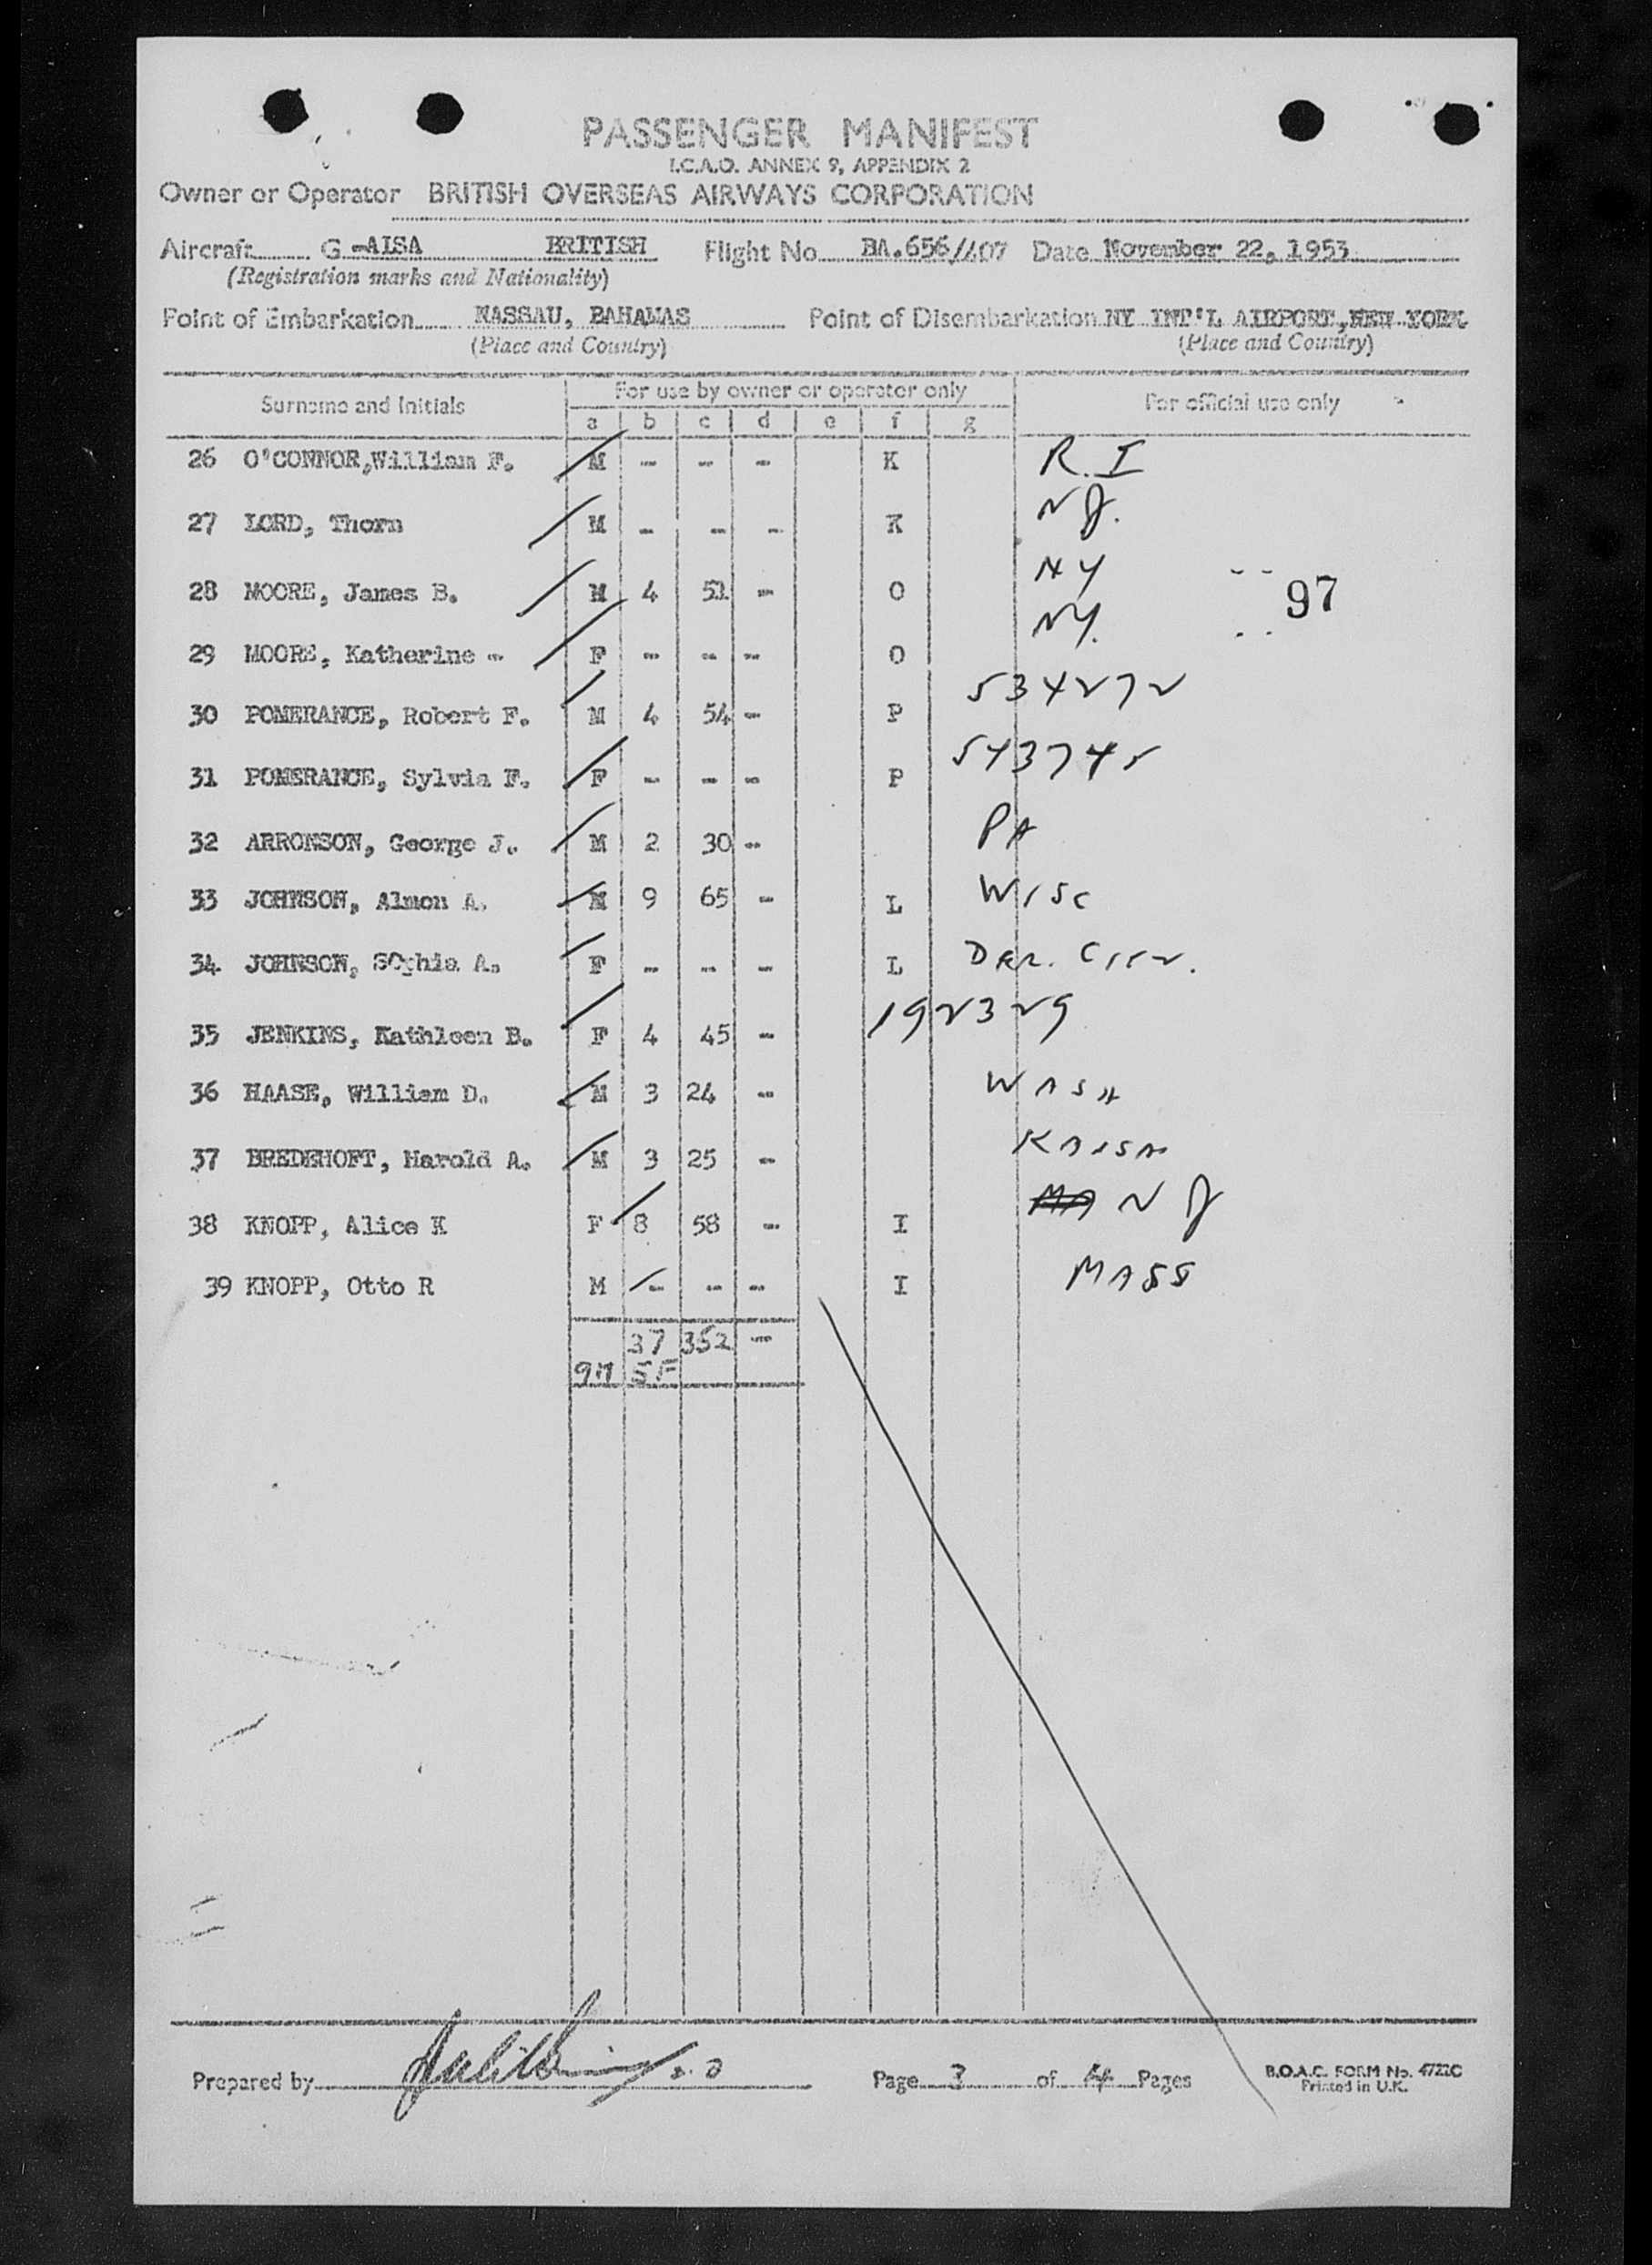 PASSENGER MANIFEST
I.C.A.O. ANNEX 9, APPENDIX 2
Owner or Operator BRITISH OVERSEAS AIRWAYS CORPORATION
Aircraft G-ALSA BRITISH Flight No BA.656/407 Date November 22, 1953
(Registration marks and Nationality)
Point of Embarkation NASSAU, BAHAMAS Point of Disembarkation NY INT'L AIRPORT, NEW YORK
(Place and Country) (Place and Country)
Surname and Initials For use by owner or operator only For official use only
a b c d e f g
26 O'CONNOR, William F. M - - - K R.I
27 LORD, Thorn M - - - K NJ.
28 MOORE, James B. M 4 51 - O NY
97
29 MOORE, Katherine - F - - - O NY.
30 POMERANCE, Robert F. M 4 54 - P 534272
31 POMERANCE, Sylvia F. F - - - P 543745
32 ARRONSON, George J. M 2 30 - PA
33 JOHNSON, Almon A. M 9 65 - L WISC
34 JOHNSON, SOphia A. F - - - L
35 JENKINS, Kathleen B. F 4 45 - 192329
36 HAASE, William D. M 3 24 - WASH
37 BREDEHOFT, Harold A. M 3 25 -
38 KNOPP, Alice K F 8 58 - I MA NJ
39 KNOPP, Otto R M - - - I MASS
37 352 -
9M 5F
Prepared by Page 3 of 4 Pages B.O.A.C. FORM No. 4722C
Printed in U.K.